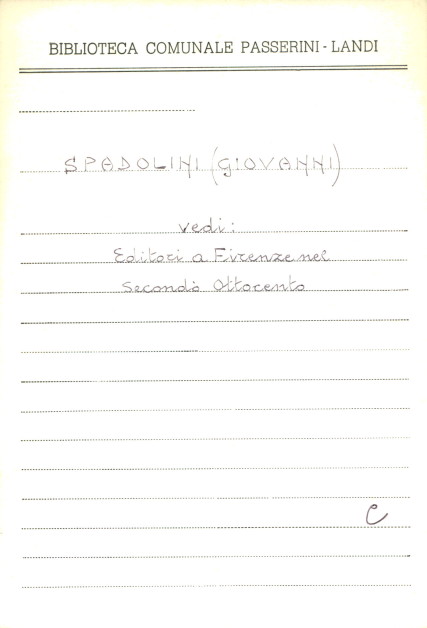 BIBLIOTECA COMUNALE PASSERINI - LANDI
SPADOLINI (GIOVANNI)
vedi:
Editori a Firenze nel
Secondo Ottocento
C